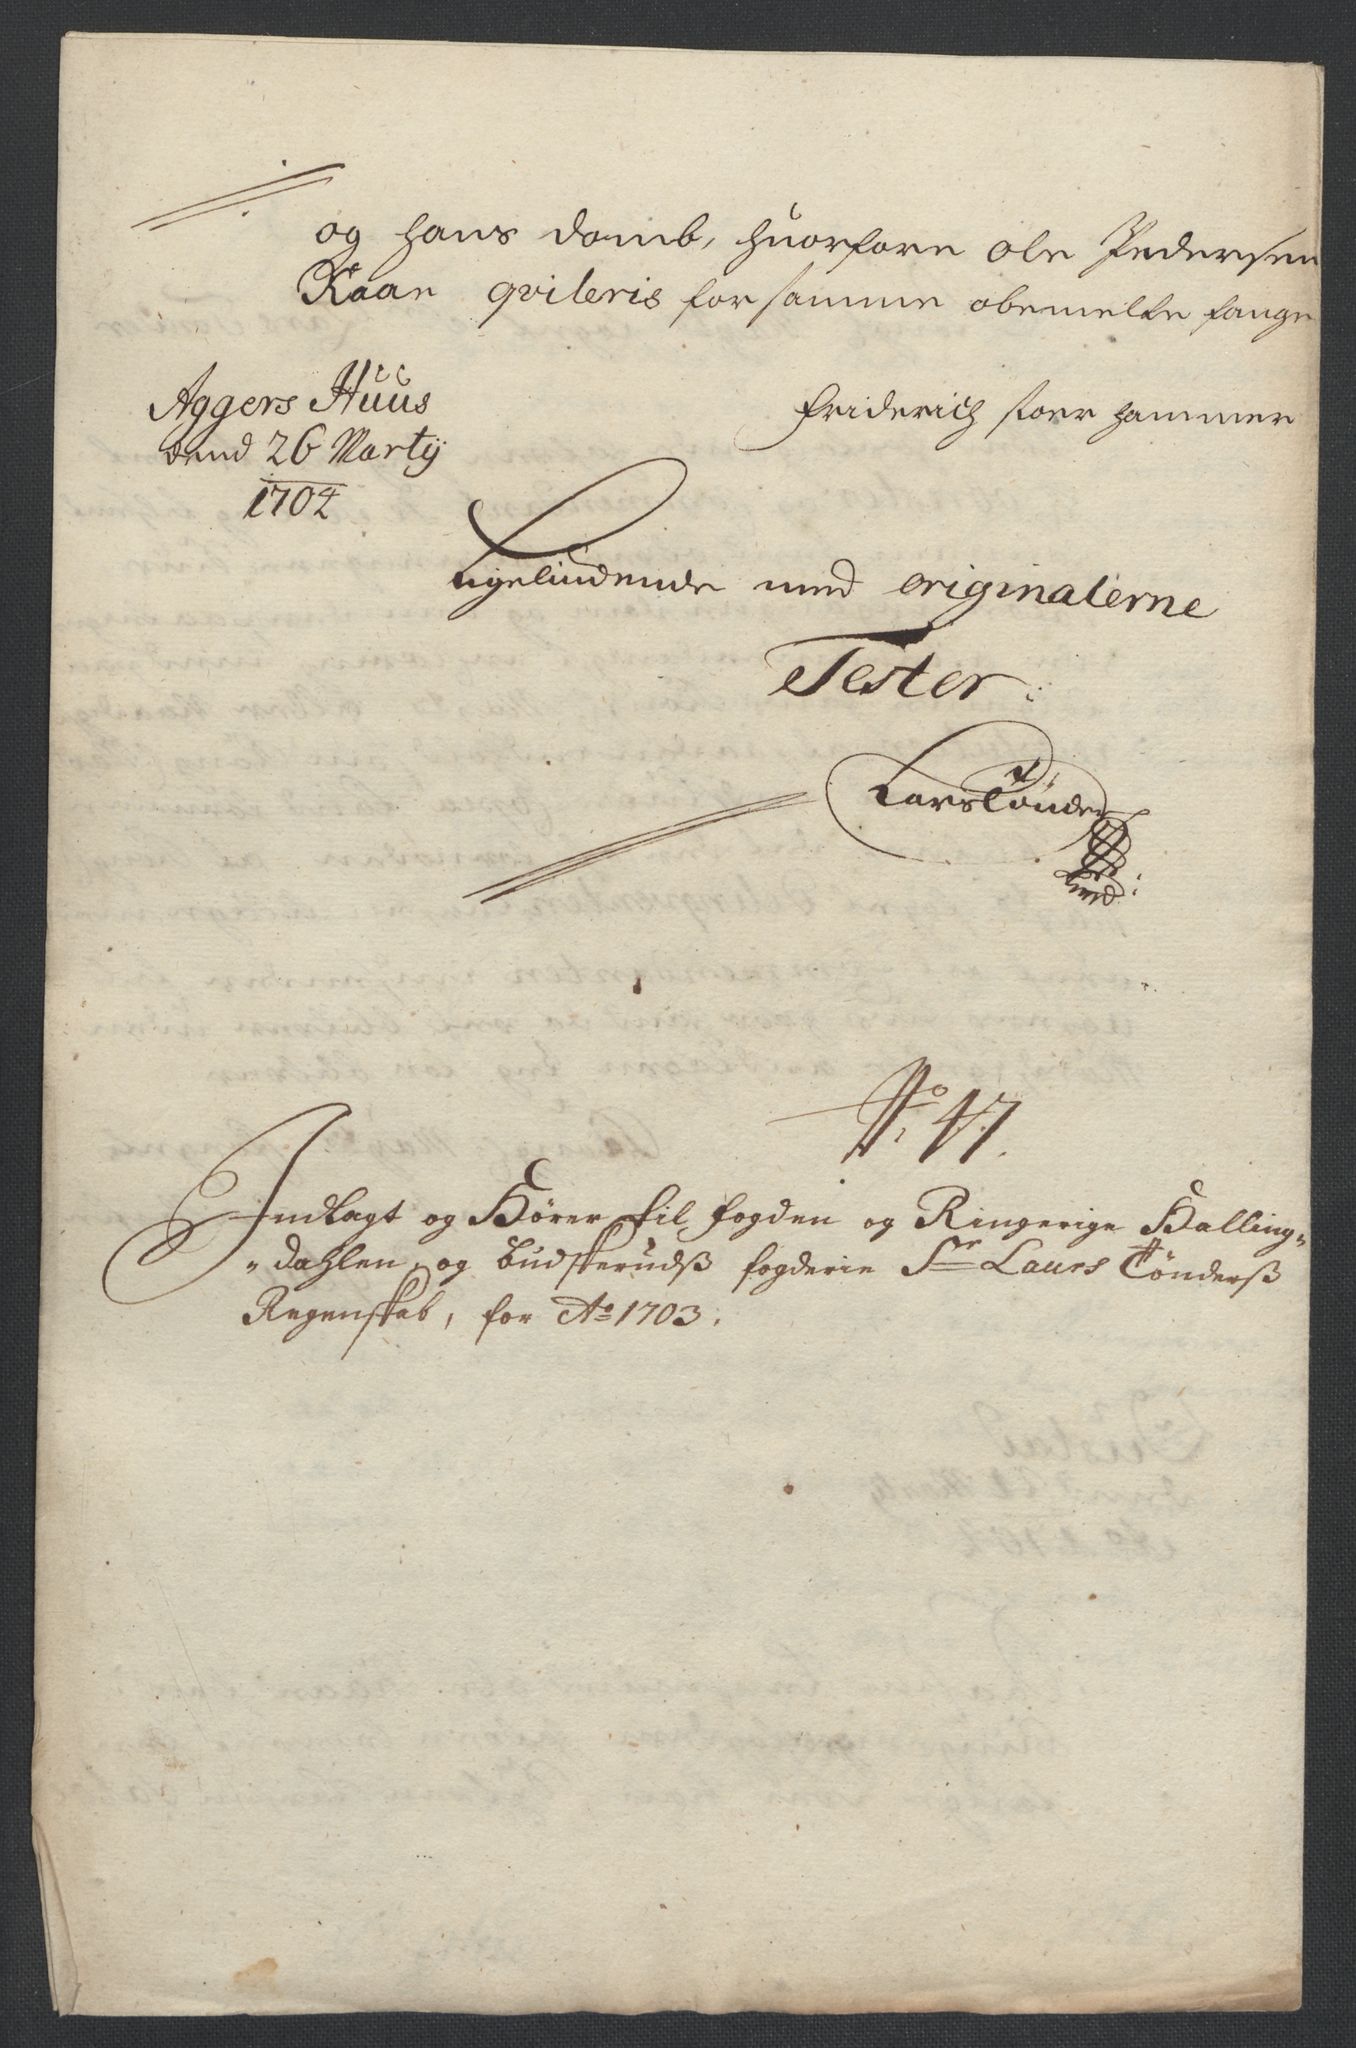 og hans domb, huorfore Ole Pedersen
Raae qviteris for samme obemelte fange
Aggers Huus
dend 26 Martij
1704
Friderich storr hammer
Ligelindende med originalerne
Tester
Lars Tønder
No 47.
Indlagt og Hører til fogden og Ringerige Halling„
„dahlen, og Budskerudß fogderie Sr Laurs Tønderß
Regenskab, for Ao 1703.